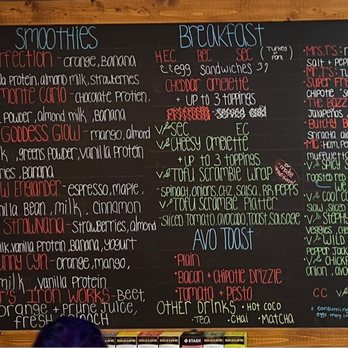 Smoothies
erfection - orange, Banana
illa protein, almond milk, strawberries
Monte Carlo - chocolate Protien,
Powder, almond milk, Banana
Goddess Glow - mango, almond
ilk, greens powder, vanilla Protein
Banana
w Englander - espresso, maple,
nilla Bean, milk, cinnamon
Strawnana - Strawberries, almond
milk, vanilla Protein, Banana, yogurt
unny Cyn - orange, mango,
milk, vanilla Protein
T's Iron Works - Beet,
orange + prune Juice,
fresh
Breakfast
HEC BEC SEC (Turkey or Pork)
egg sandwiches
cheddar omelette
+ up to 3 toppings
served cold
V SEC EC
V Cheesy omelette
+ up to 3 toppings
V Tofu Scramble Wrap
- spinach, onions, chz, salsa, RR Pepps
V Tofu Scramble Platter
- sliced tomato, avocado, toast, sausage
Avo Toast
- Plain
- Bacon + Chipotle Drizzle
- Tomato + Pesto
Other Drinks - Hot Coco
- Tea - Chai - Matcha
Mrs. T's
Salt + Pe
Mr. T's
Super
Chipotle
The Bazz
Jalapeños
Butchy
Sriracha
MC - Ham,
muffuletta
roasted
We
c
slaw
V
Veggies,
onions
V Wild
Pepper
V Chicken
onion, avo
consuming
eggs may